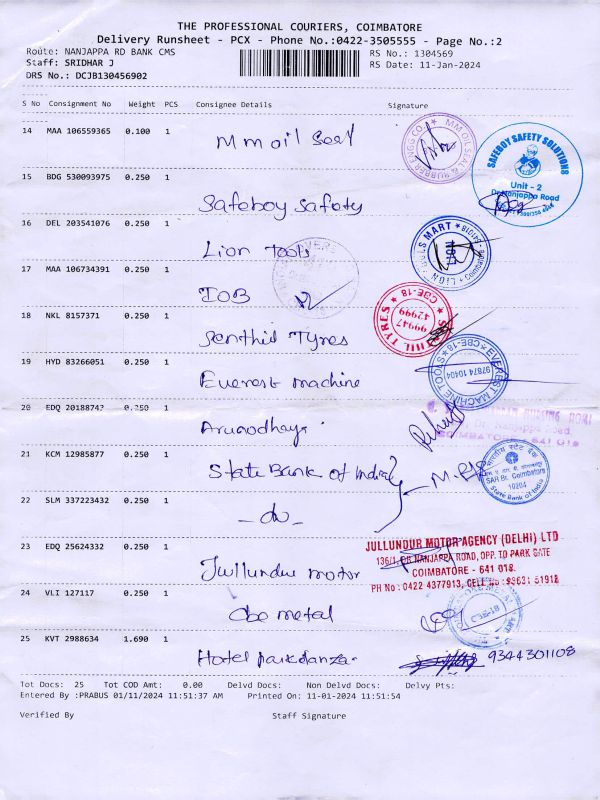 THE PROFESSIONAL COURIERS, COIMBATORE
Delivery Runsheet - PCX - Phone No.:0422-3505555 - Page No.:2
Route: NANJAPPA RD BANK CMS
RS No.: 1304569
Staff: SRIDHAR J
RS Date: 11-Jan-2024
DRS No.: DCJB130456902
S No Consignment No Weight PCS Consignee Details Signature
14 MAA 106559365 0.100 1
mm oil seal
MM OIL SEAL & RUBBER
SAFEBOY SAFETY SOLUTIONS
Unit - 2
Dr.Nanjappa Road
15 BDG 530093975 0.250 1
Safeboy Safety
16 DEL 203541076 0.250 1
Lion Tools
LION TOOLS MART
17 MAA 106734391 0.250 1
IOB
18 NKL 8157371 0.250 1
Senthil Tyres
SENTHIL TYRES
CBE-18
99947
42999
19 HYD 83266051 0.250 1
Everest machine
EVEREST MACHINE TOOLS
CBE-18
97874 10404
20 EDQ 20188742 0.250 1
Arunodhaya
NURSING HOME
Dr. Nanjappa Road,
COIMBATORE - 641 018
21 KCM 12985877 0.250 1
State Bank of India
SAR Br. Coimbatore
10204
State Bank of India
22 SLM 337223432 0.250 1
- do -
23 EDQ 25624332 0.250 1
Jullundur motor
JULLUNDUR MOTOR AGENCY (DELHI) LTD
136/1, DR NANJAPPA ROAD, OPP. TO PARK GATE
COIMBATORE - 641 018.
PH No : 0422 4377913, CELL No : 93631 51918
24 VLI 127117 0.250 1
metal
25 KVT 2988634 1.690 1
Hotel parkplanza
9344301108
Tot Docs: 25 Tot COD Amt: 0.00 Delvd Docs: Non Delvd Docs: Delvy Pts:
Entered By :PRABUS 01/11/2024 11:51:37 AM Printed On: 11-01-2024 11:51:54
Verified By Staff Signature